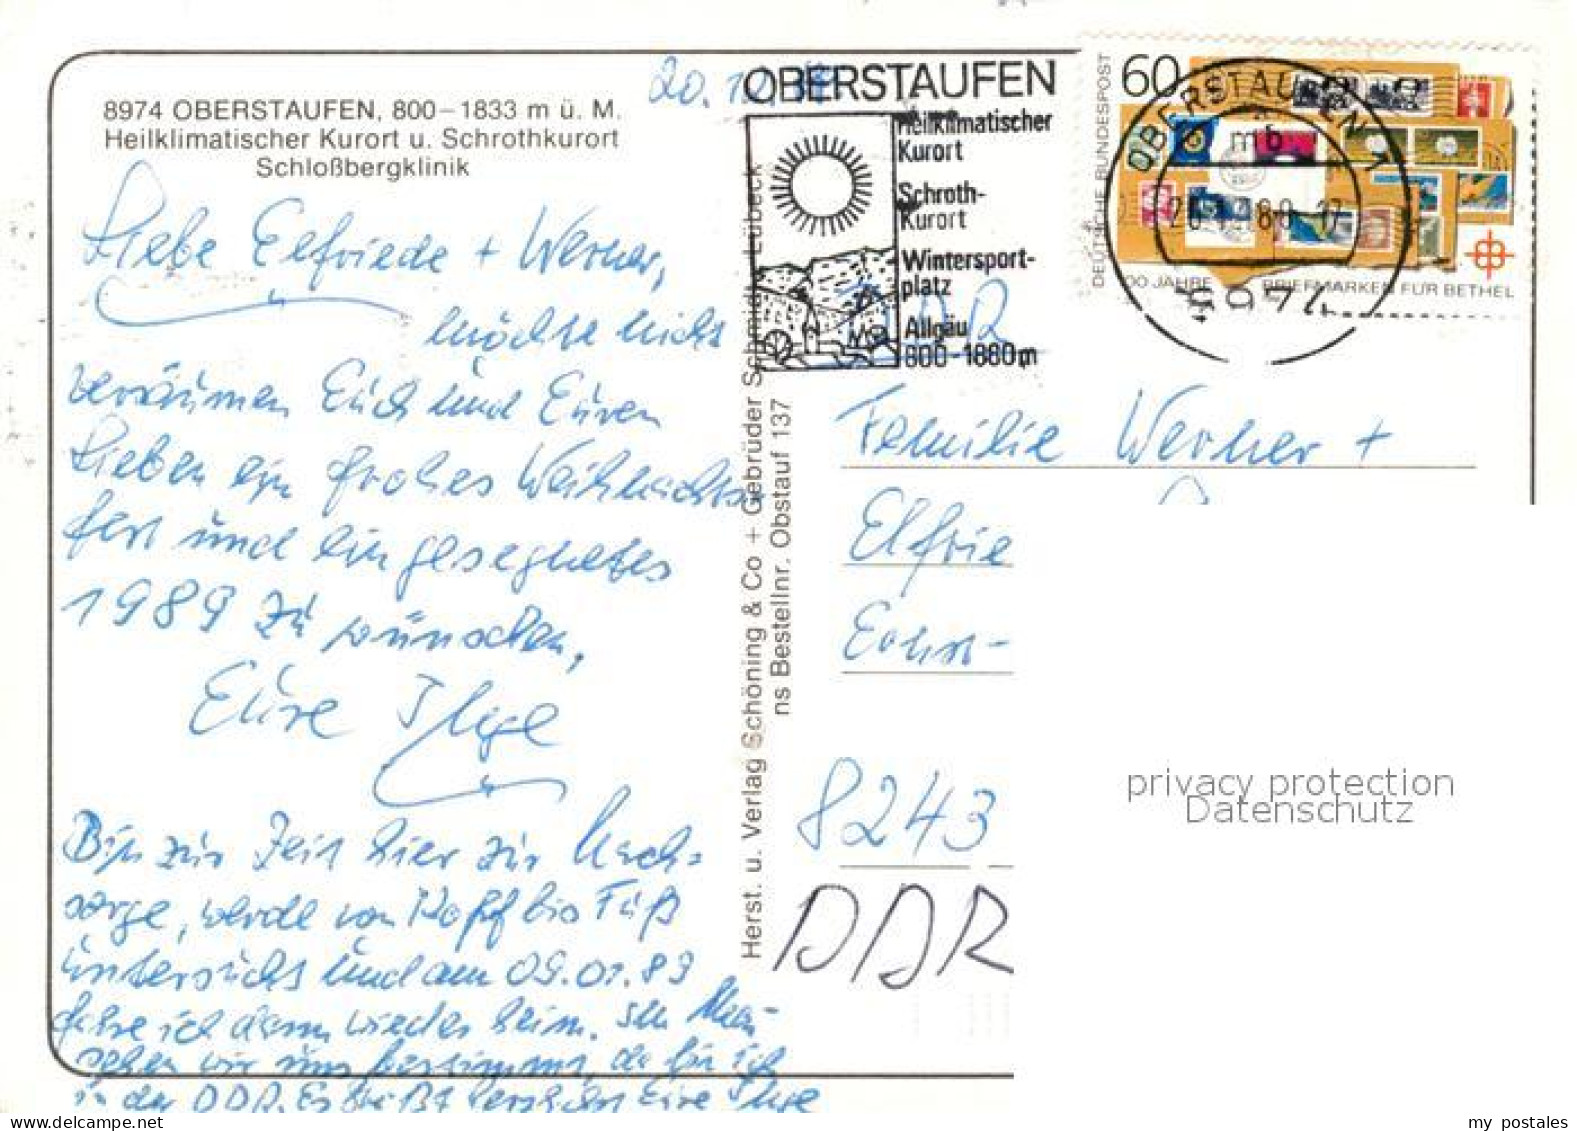 8974 OBERSTAUFEN, 800–1833 m ü. M.
Heilklimatischer Kurort u. Schrothkurort
Schloßbergklinik
20.12.
Liebe Elfriede + Werner,
möchte nicht
versäumen Euch und Euren
Lieben ein frohes Weihnachts-
fest und ein gesegnetes
1989 zu wünschen,
Eure Ilge
Bin zur Zeit hier zur Nach-
sorge, werde von Kopf bis Fuß
untersucht und am 09.01.89
fahre ich dann wieder heim. Im
sehen wir uns bestimmt, da bin ich
in der DDR. Es Eure Ilge
Herst. u. Verlag Schöning & Co + Gebrüder Schmidt, Lübeck
ns Bestellnr. Obstauf 137
OBERSTAUFEN
Heilklimatischer
Kurort
Schroth-
Kurort
Wintersport-
platz
Allgäu
800-1880m
DEUTSCHE BUNDESPOST
60
100 JAHRE BRIEFMARKEN FÜR BETHEL
OBERSTAUFEN 1
mb
8974
DDR
Familie Werner +
Elfrie
8243
DDR
privacy protection
Datenschutz
my postales